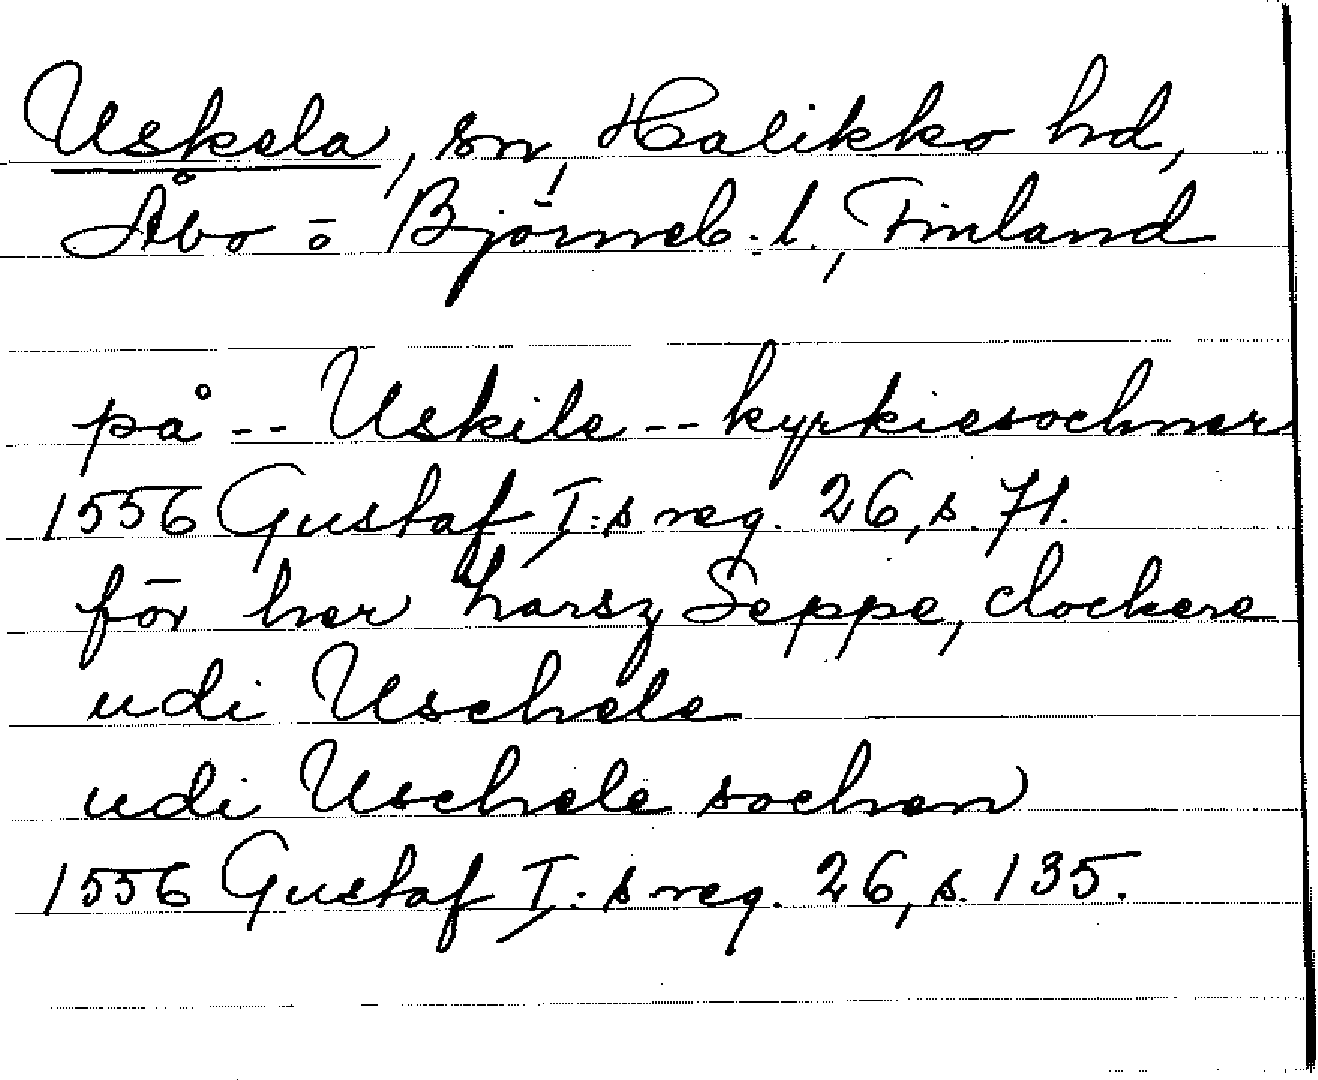 Uskela, sn, Halikko hd,
Åbo ō Björneb. l., Finland
på -- Uskile -- kyrkiesochner
1556 Gustaf I:s reg. 26, s. 71.
för her Larsz Seppe, clockere
udi Uschele
udi Uschele sochen
1556 Gustaf I:s reg. 26, s. 135.